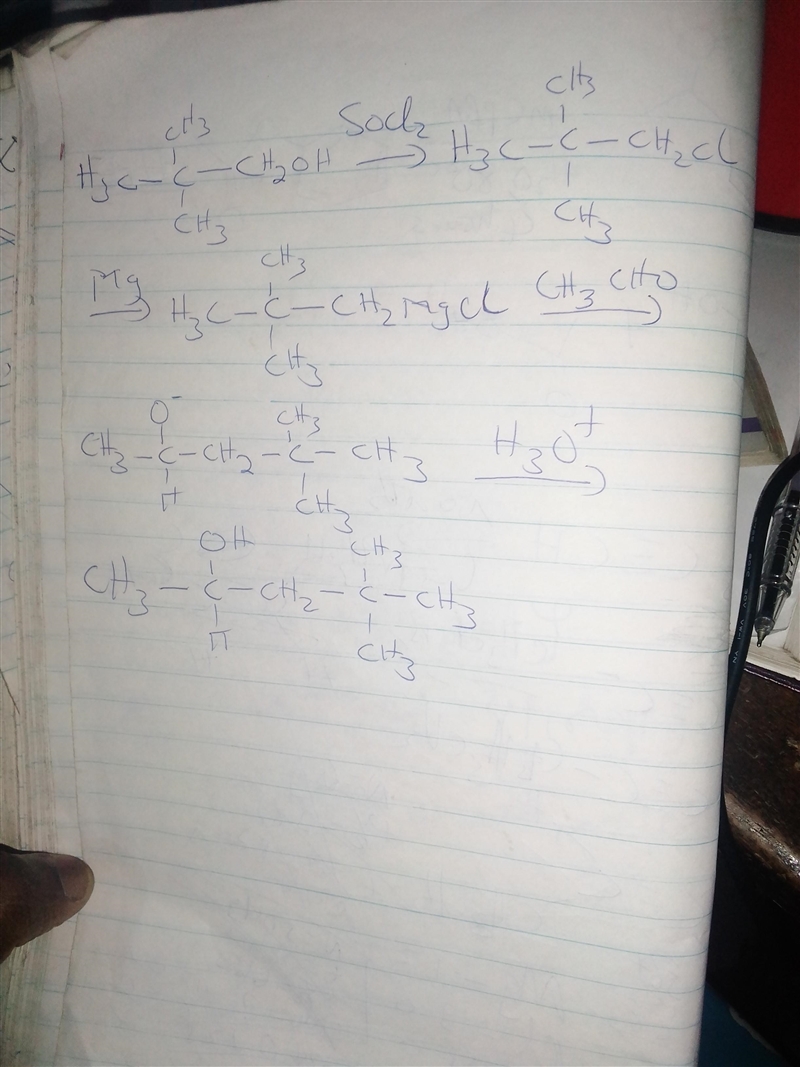 CH3 CH3
H3C-C-CH2OH SOCl2 → H3C-C-CH2Cl
CH3 CH3
CH3
Mg → H3C-C-CH2MgCl CH3CHO →
CH3
O- CH3
CH3-C-CH2-C-CH3 H3O+ →
H CH3
OH CH3
CH3-C-CH2-C-CH3
H CH3